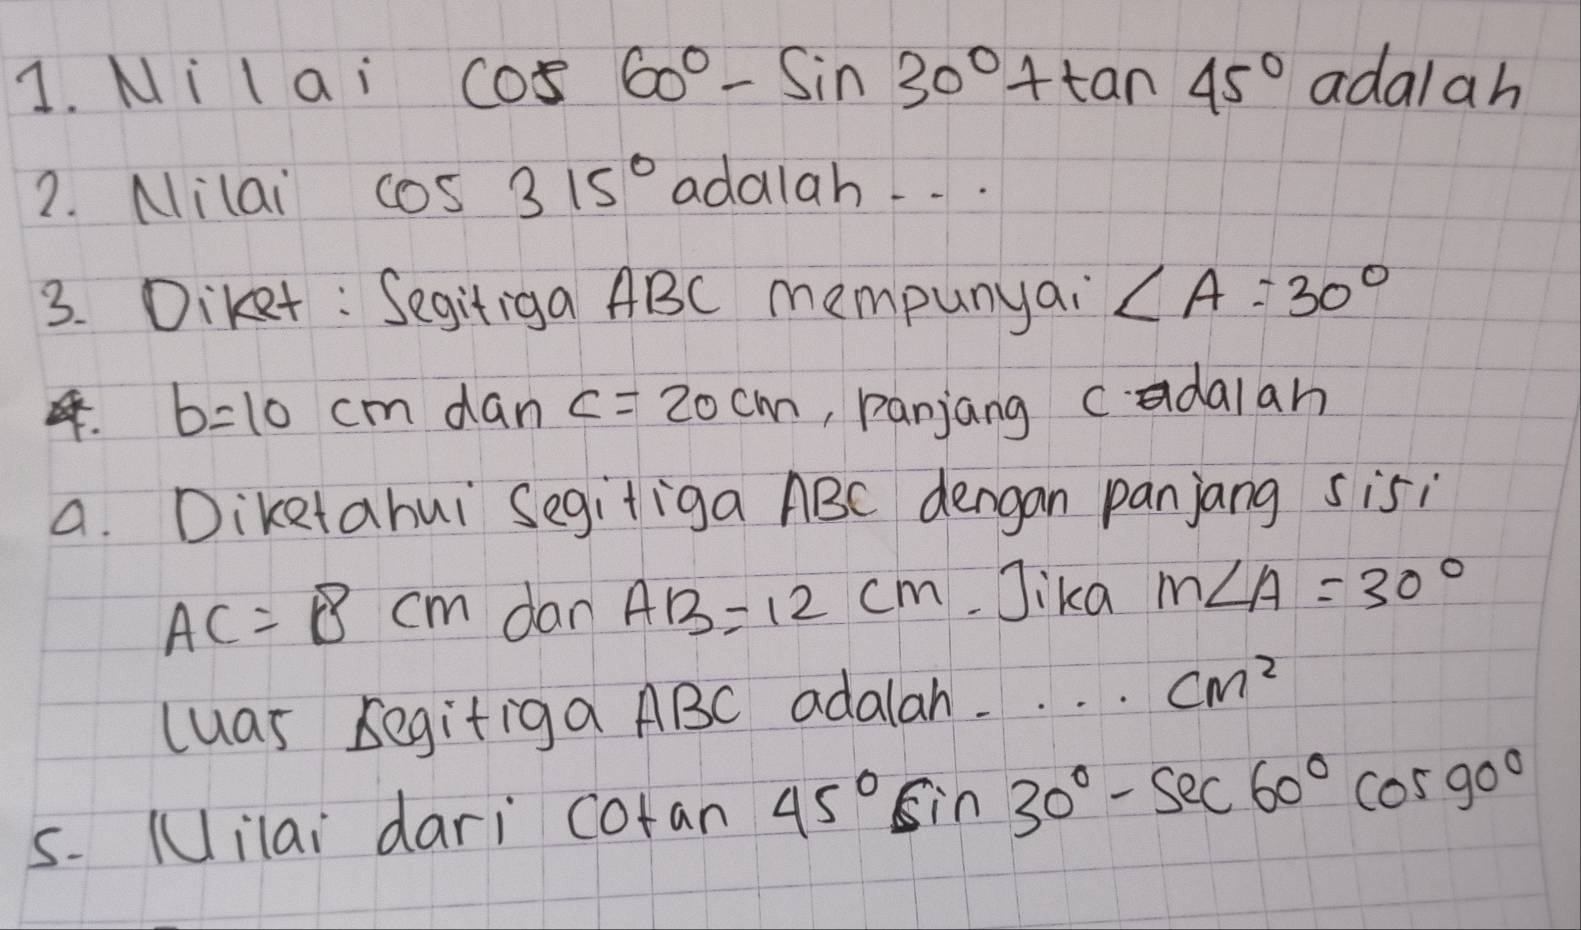 1. Nilai cos 60° - Sin 30° + tan 45° adalah
2. Nilai cos 315° adalah ....
3. Diket : Segitiga ABC mempunyai ∠ A = 30°
4. b=10 cm dan c = 20 cm, panjang c adalah
a. Diketahui segitiga ABC dengan panjang sisi
AC = 8 cm dan AB = 12 cm. Jika m∠A = 30°
luas segitiga ABC adalah..... cm²
5. Nilai dari cotan 45° sin 30° - sec 60° cos 90°